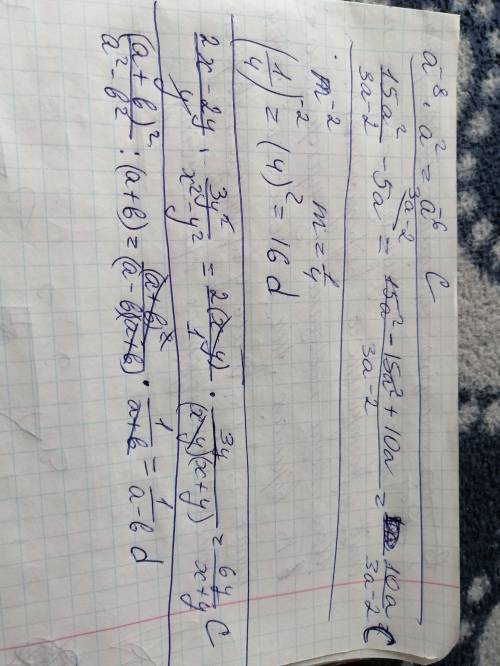 a⁻⁸ · a² = a⁻⁶ C
15a²/(3a-2) - 5a = (15a² - 15a² + 10a)/(3a-2) = 10a/(3a-2) C
m⁻² m = 1/4
(1/4)⁻² = (4)² = 16 d
(2x-2y)/y · 3y²/(x²-y²) = 2(x-y)/1 · 3y/((x-y)(x+y)) = 6y/(x+y) C
(a+b)²/(a²-b²) : (a+b) = (a+b)²/((a-b)(a+b)) · 1/(a+b) = 1/(a-b) d